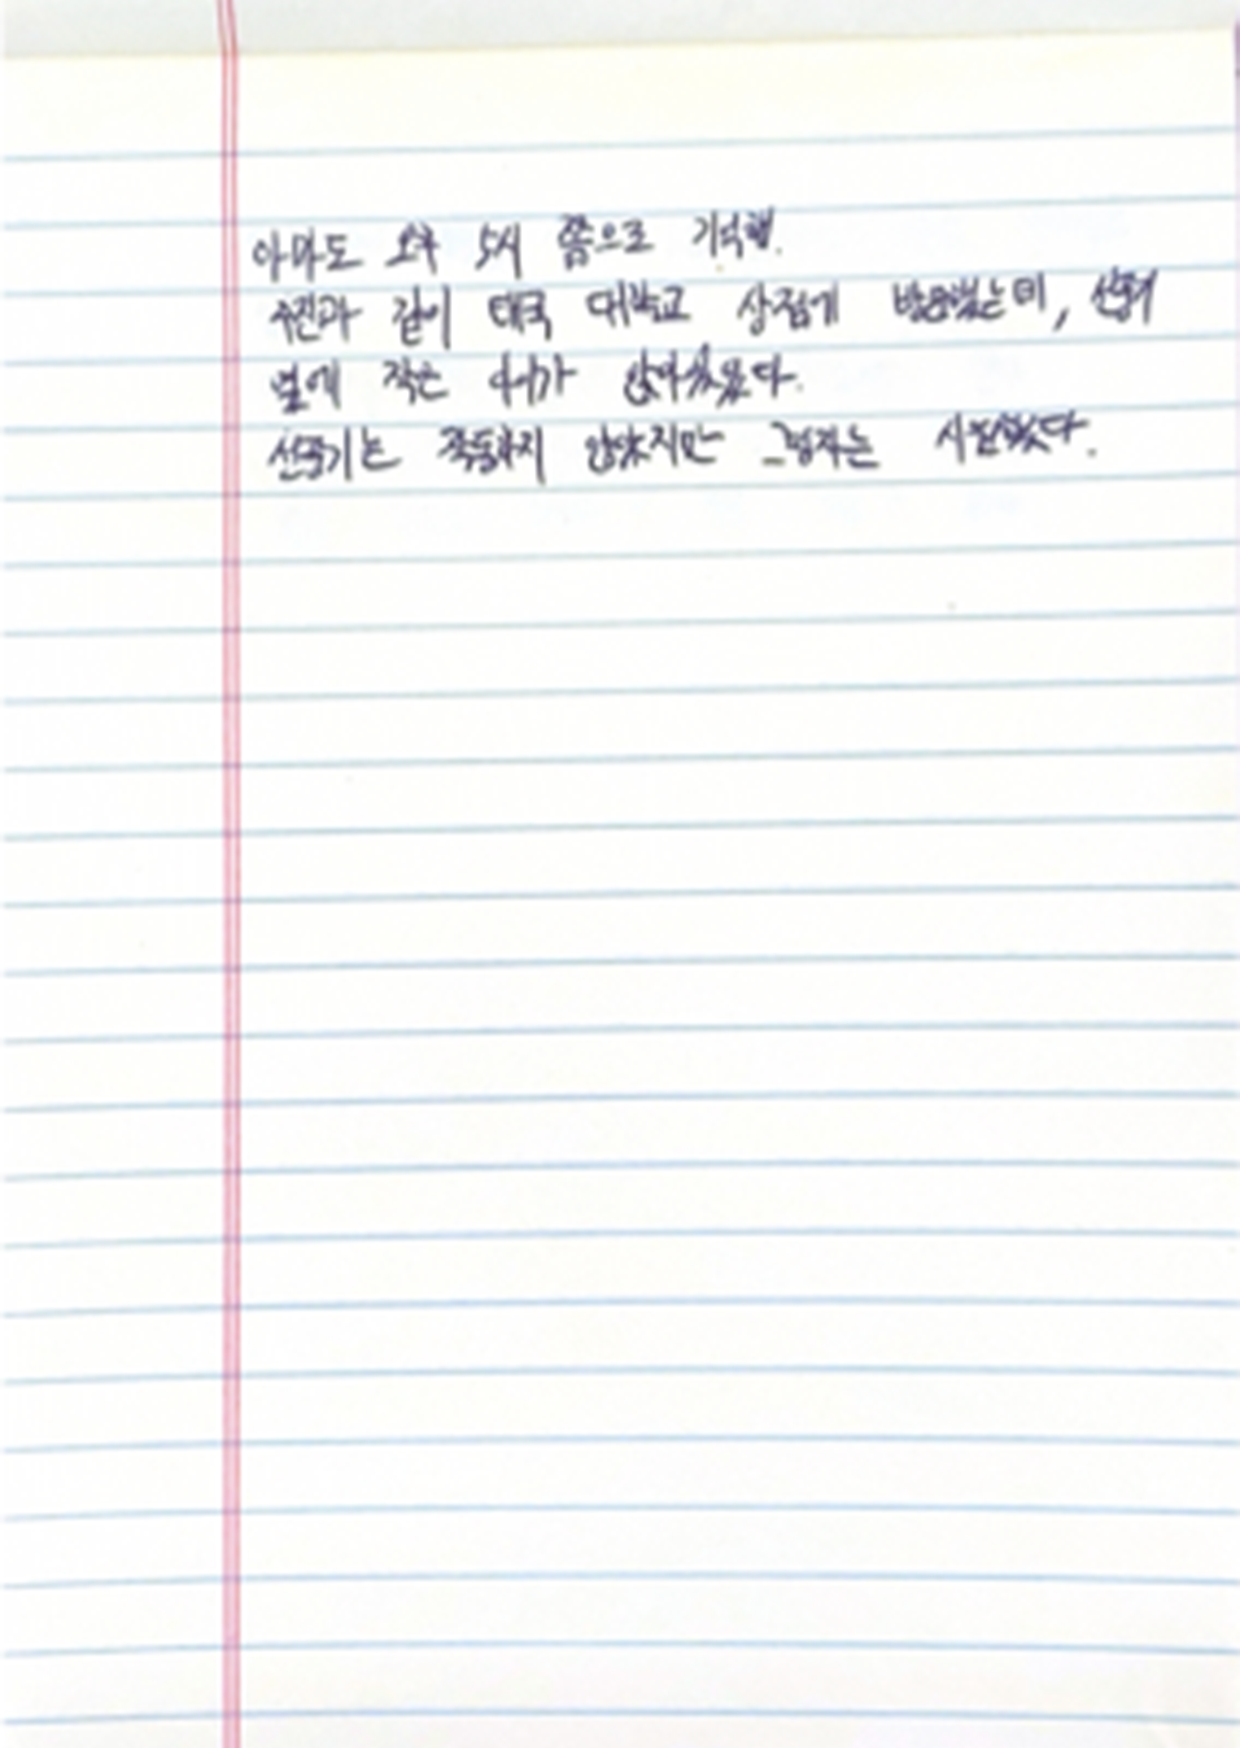 아마도 오후 5시 쯤으로 기억해.
수진과 같이 태국 대학교 상점에 방문했는데, 선풍기
옆에 작은 아이가 앉아있었다.
선풍기는 작동하지 않았지만 그림자는 시원했다.